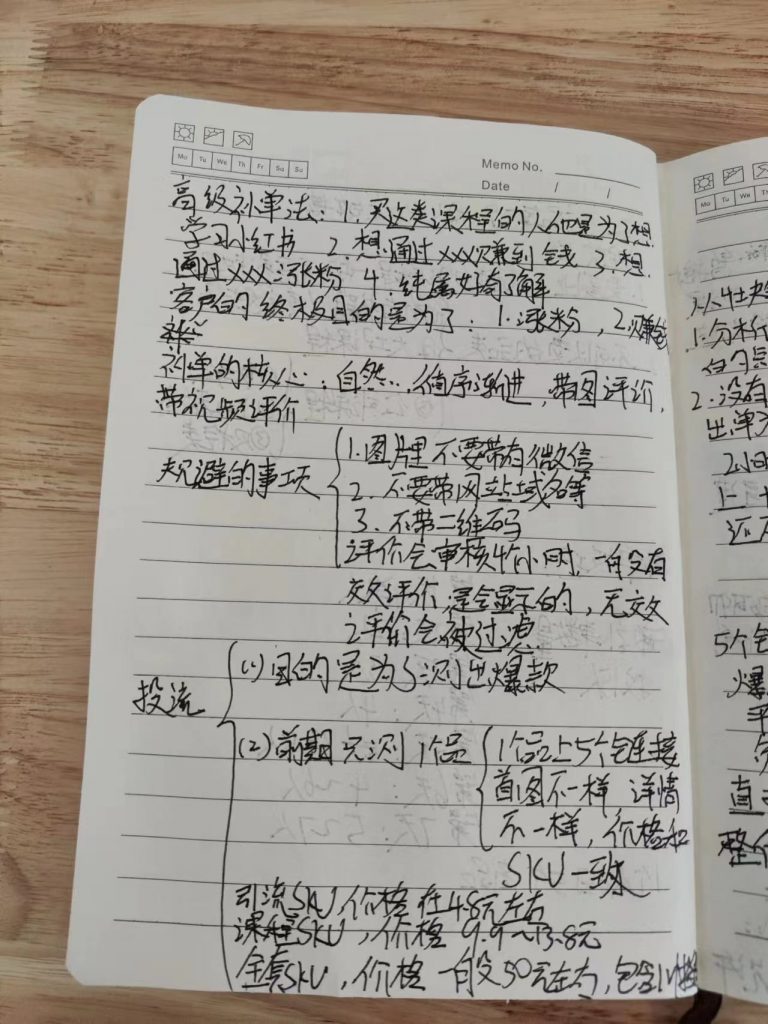 Mo Tu We Th Fr Sa Su
Memo No.
Date / /
高级补单法：1. 买这类课程的人他是为了想
学习小红书 2. 想通过xxx赚到钱 3. 想
通过xxx涨粉 4. 纯属好奇了解
客户的终极目的是为了：1. 涨粉，2. 赚钱
补单的核心：自然..，循序渐进，带图评价，
带视频评价
规避的事项
1. 图片里不要带有微信
2. 不要带网站域名等
3. 不带二维码
评价会审核4个小时，一般有
效评价，是会显示的，无效
评价会被过滤
投流
(1) 目的是为了测出爆款
(2) 前期先测1个品
1个品上5个链接
首图不一样 详情
不一样，价格和
SKU一致
引流SKU，价格在4.8元左右
课程SKU，价格9.9~13.8元
全套SKU，价格一般50元左右，包含
Mo Tu We Th
1. 分析
2. 没有
出单
5个
爆
平
直
整个